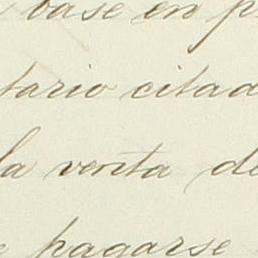 base en p
tario citad
la venta de
pagarse